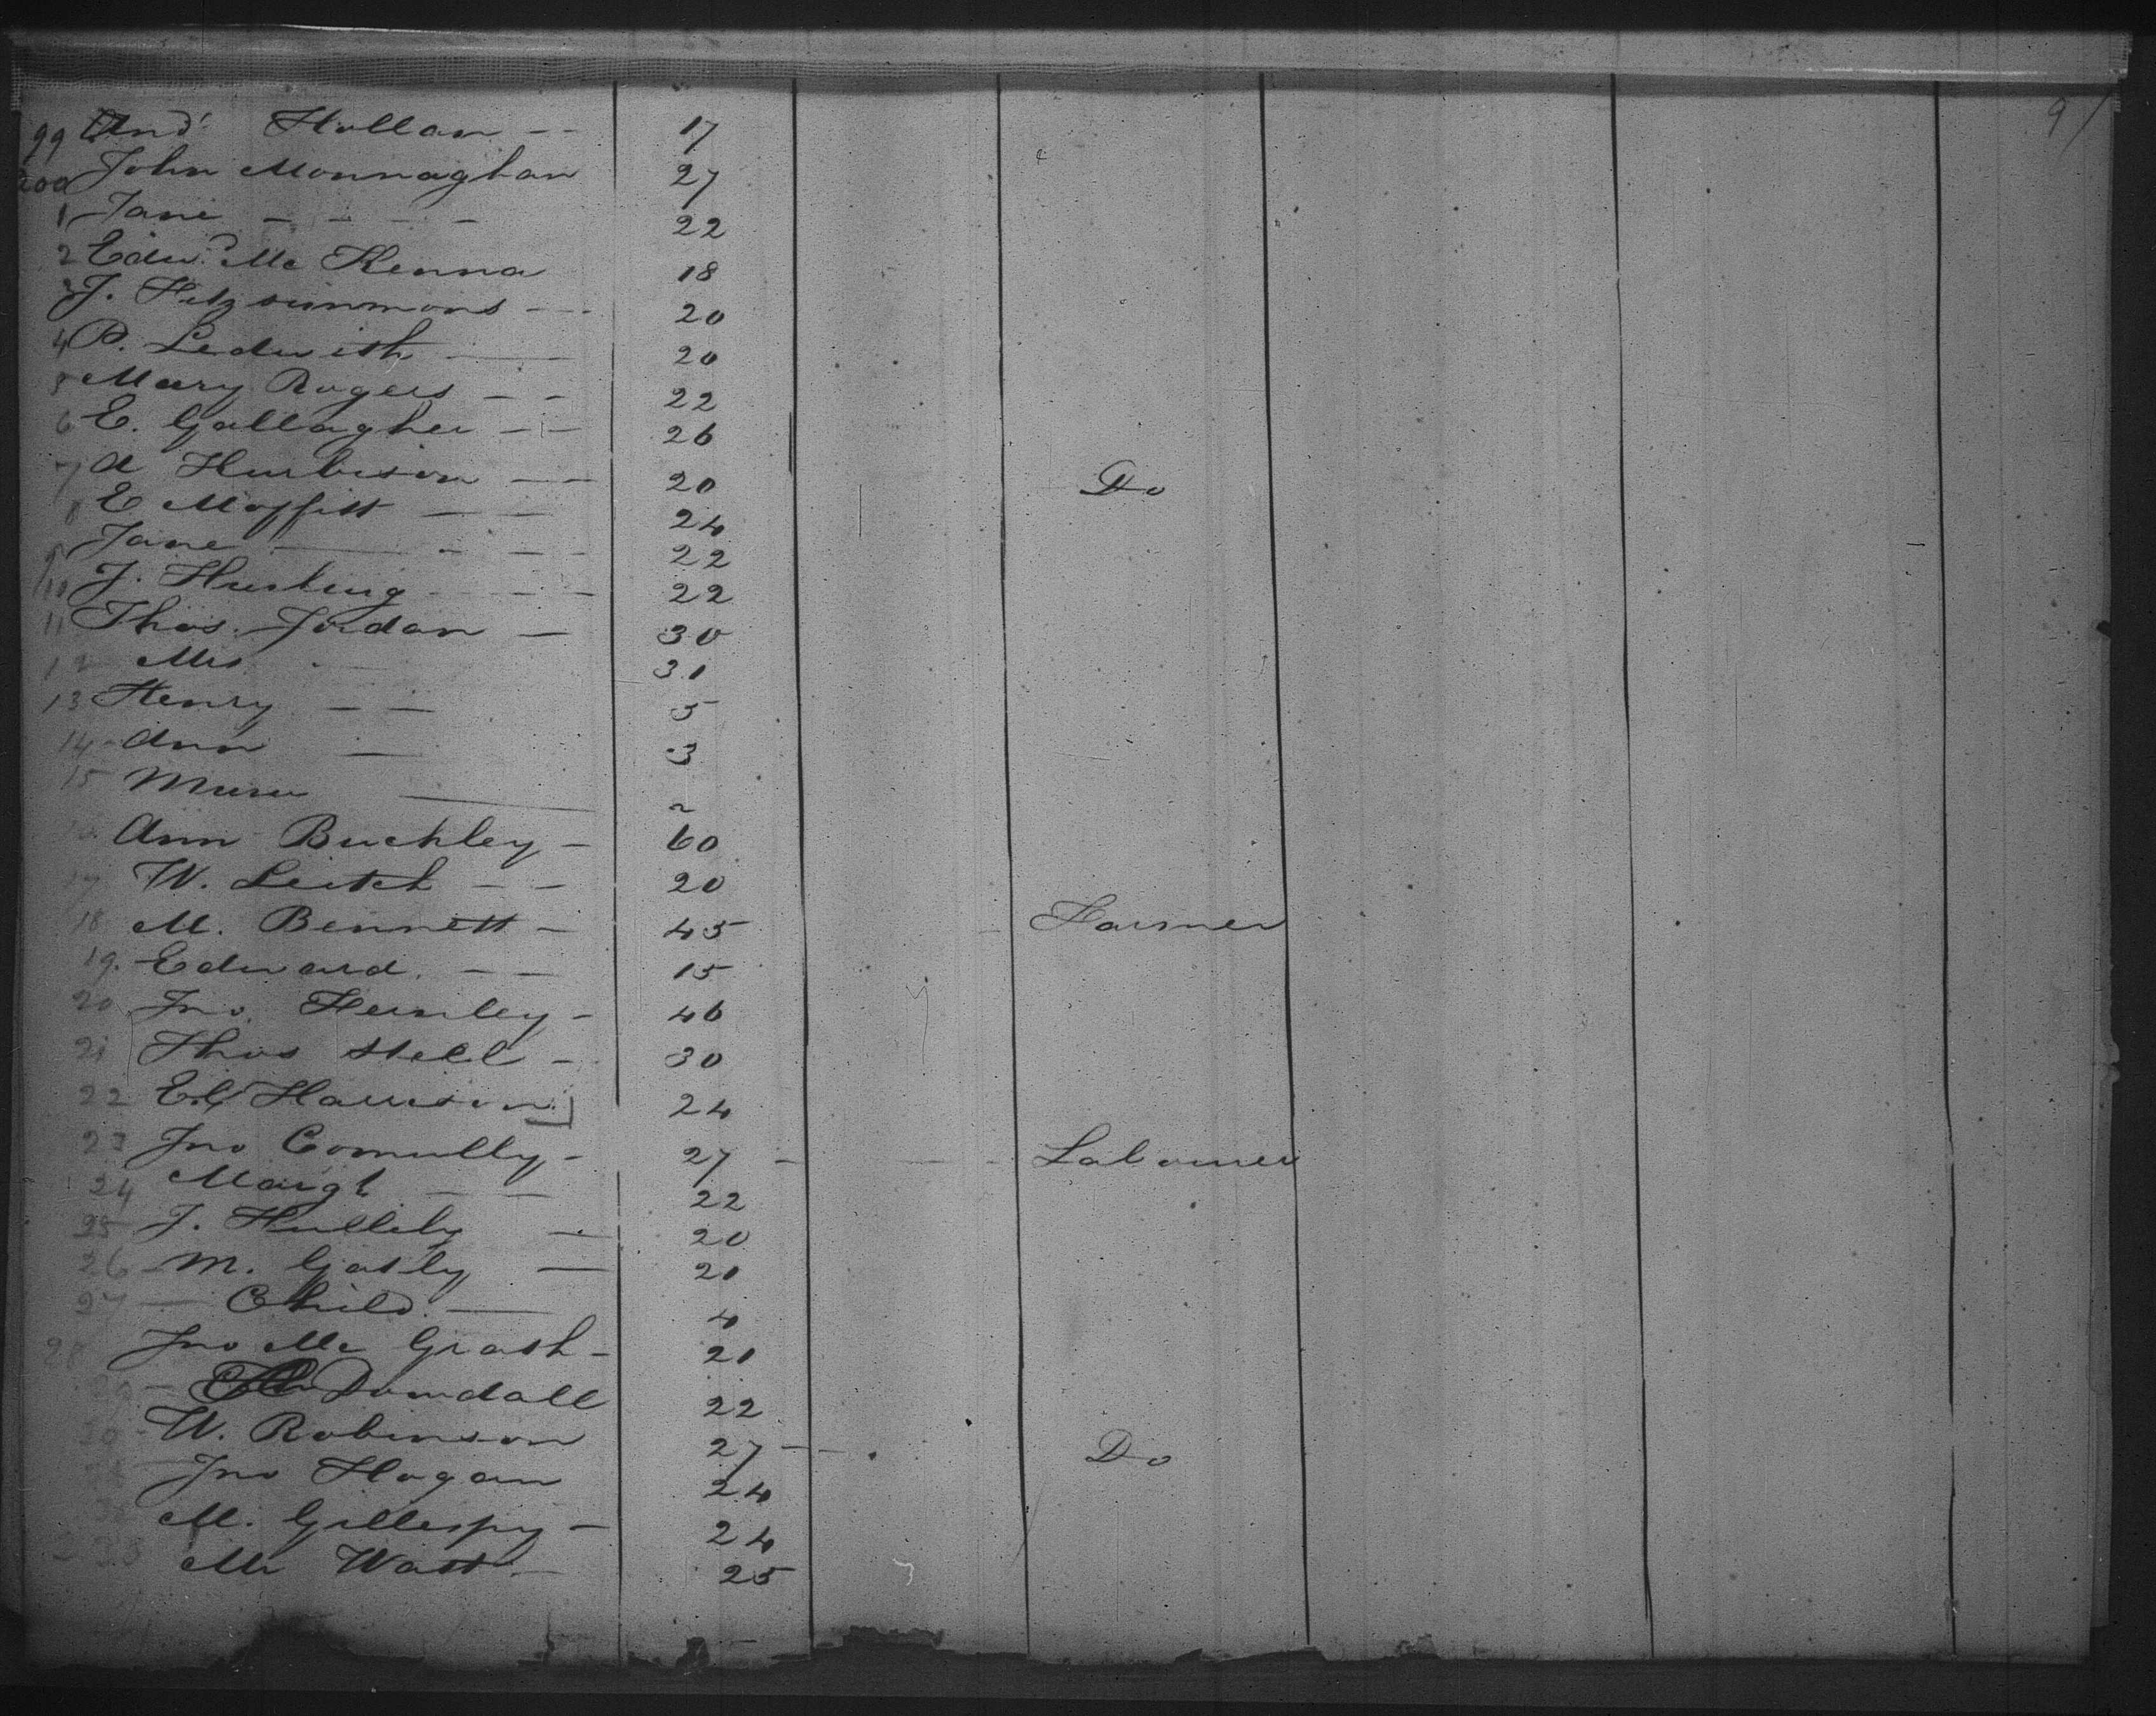 91
99 And. Hollan -- 17
200 John Monnaghan 27
1 Jane - - - - 22
2 Edw. Mc Kenna 18
3 J. Fitzsimmons --- 20
4 P. Ledwith 20
5 Mary Rogers - - 22
6 E. Gallagher -- 26
7 A Hurbison -- 20 Do
8 E Moffitt - - 24
9 Jane - - - - 22
10 J. 22
11 Thos. Jordan - 30
12 Mrs. - 31
13 Henry - - 5
14 Ann - 3
15
16 Ann Buchley - 60
17 W. Leitch - - 20
18 M. Bennett - 45 - Farmer
19. Edward. - - 15
20 Jno. Hernley - 46
21 Thos Steel - 30
22 Harrison 24
23 Jno Connully - 27 - - - Labourer
24 Margt - - 22
25 J. - 20
26 M. Gatly - 21
27 - Child. - 4
28 Jno Mc Grath - 21
29 - Dowdall 22
30 - W. Robinson 27 - - Do
31 Jno Hogan 24
32 M. Gillespy - 24
33 Mr Watt - 25